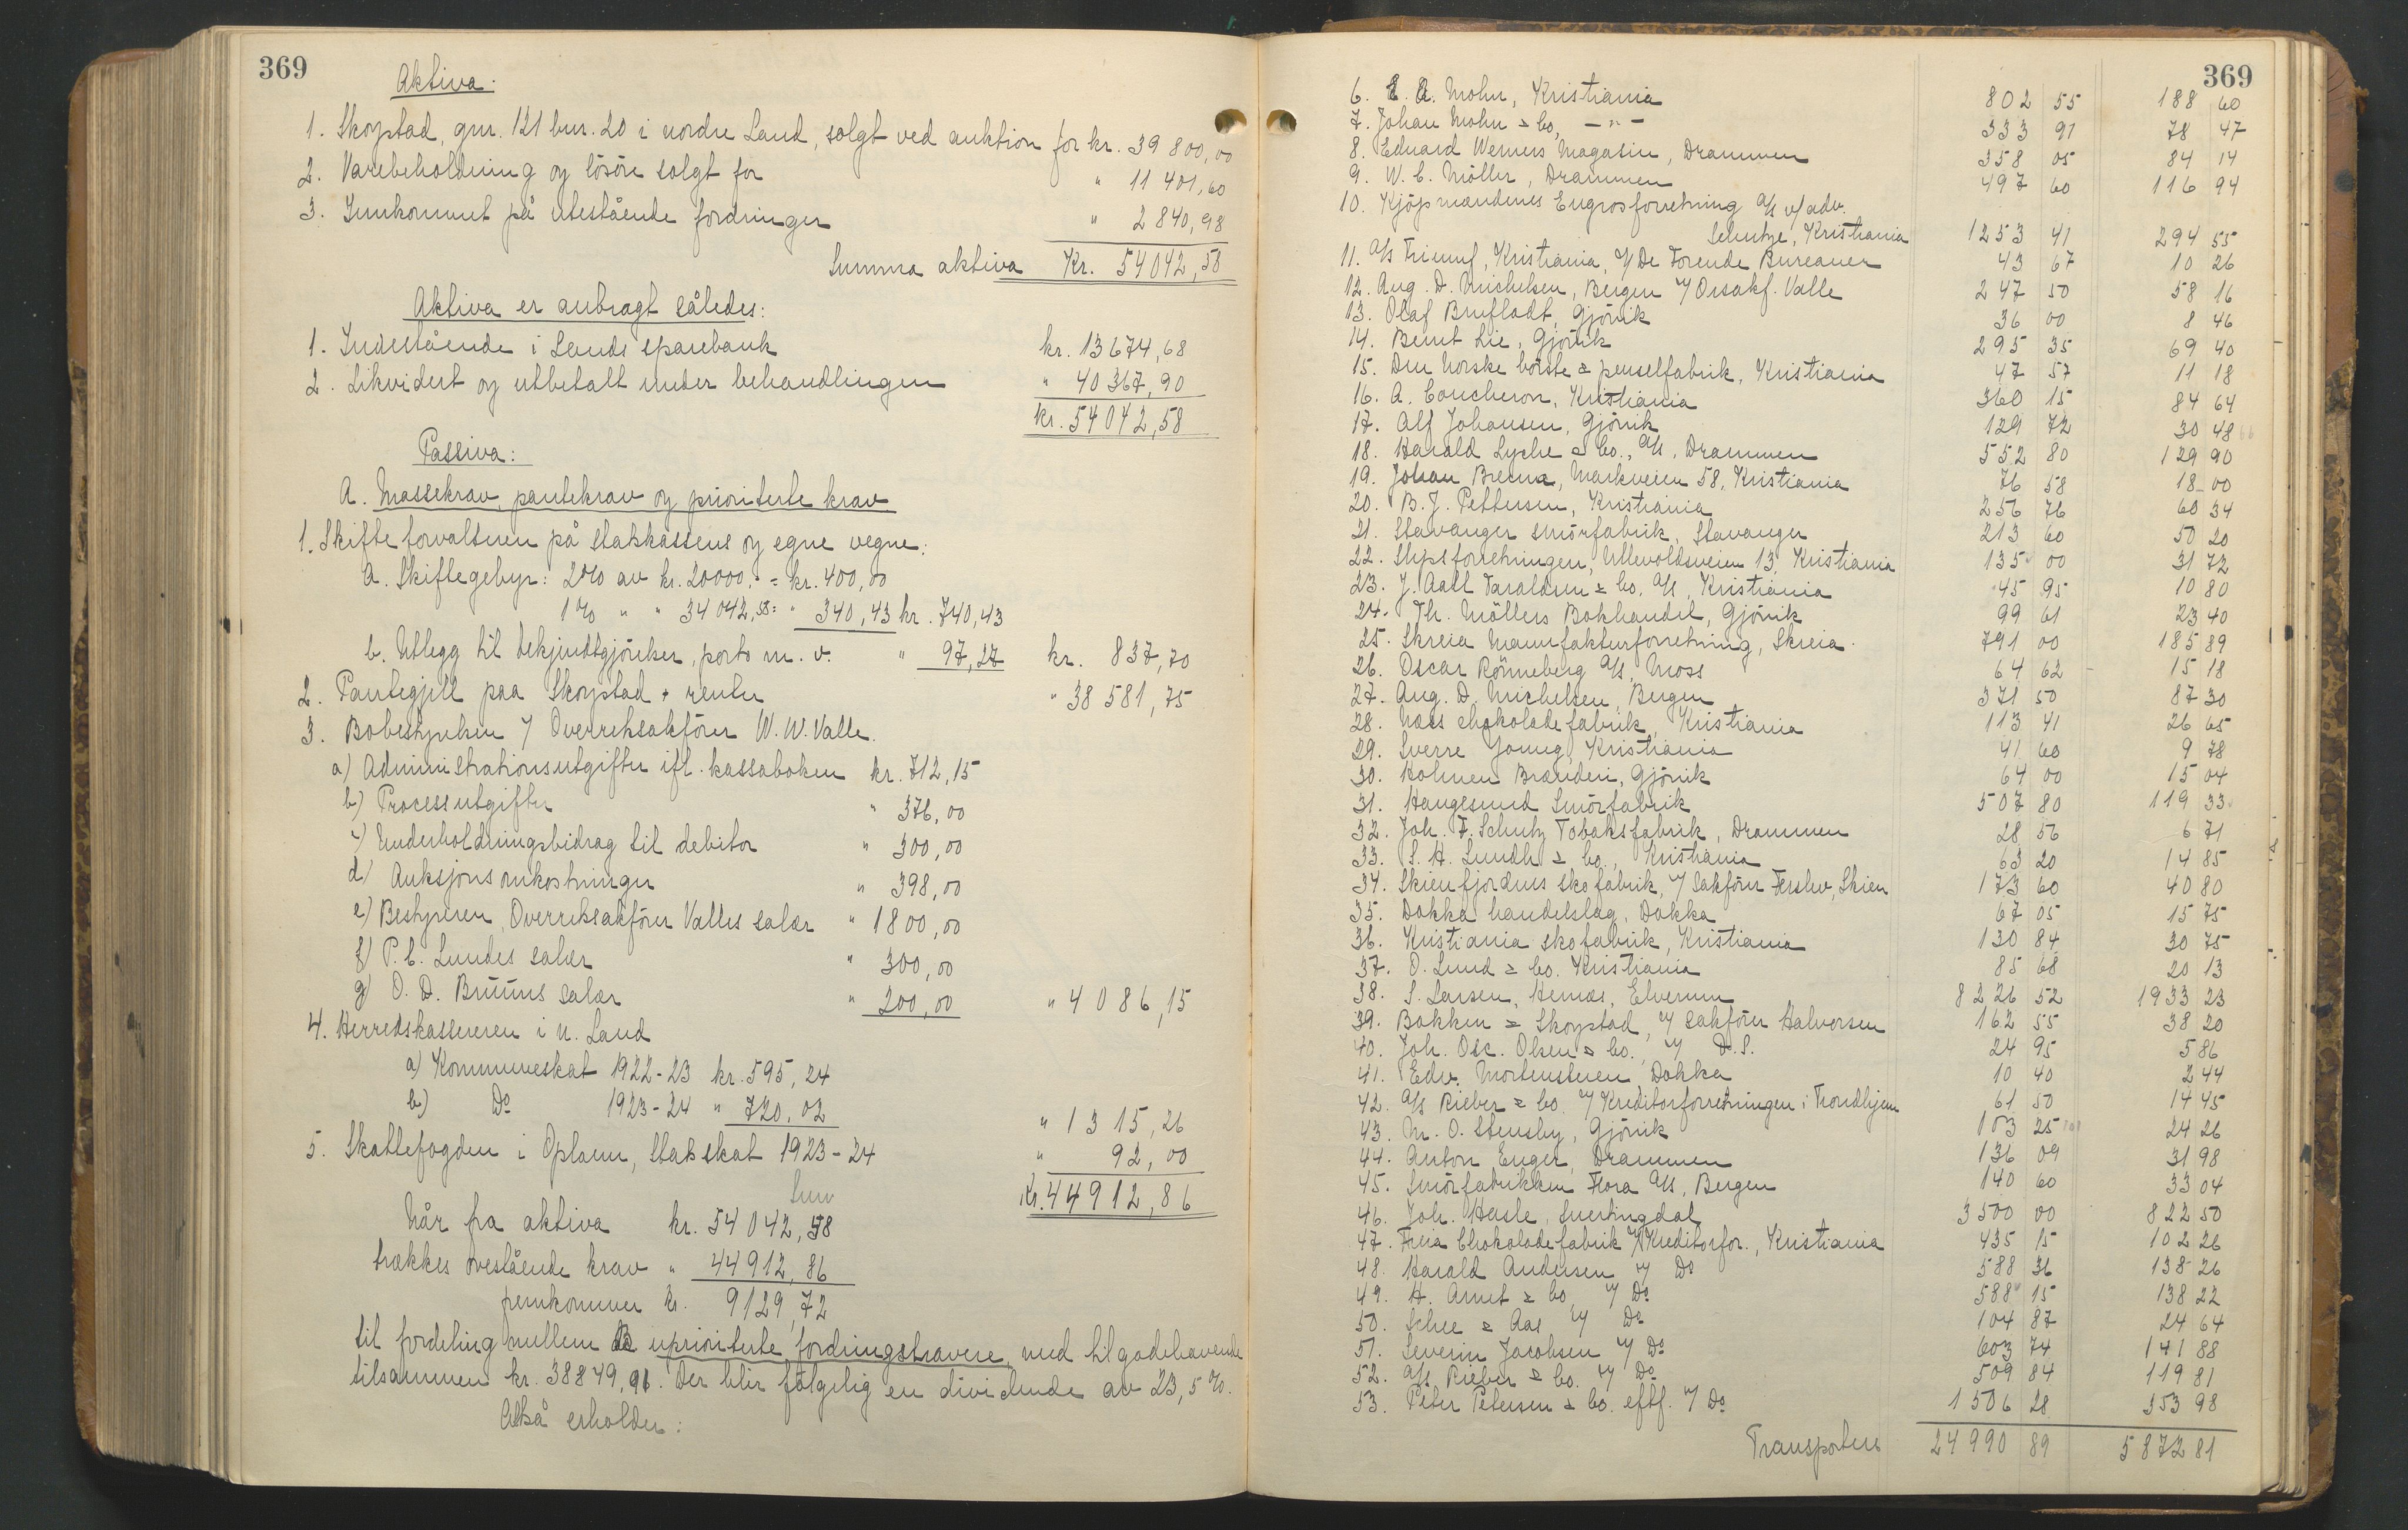 369
Aktiva:
1. Skogstad, gnr. 121 bnr. 20 i nordre Land, solgt ved auktion for kr. 39 800,00
2. Varebeholdning og lösöre solgt for " 11 401,60
3. Innkommet på utestående fordringer " 2 840,98
Summa aktiva Kr. 54 042,58
Aktiva er anbragt således:
1. Indestående i Lands sparebank kr. 13 674,68
2. Likvidert og utbetalt under behandlingen " 40 367,90
kr. 54 042,58
Passiva:
A. Massekrav, pantekrav og prioriterte krav
1. Skifteforvalteren på statskassens og egne vegne:
a. Skiftegebyr: 2% av kr. 20000,- = kr. 400,00
1% " " 34 042,58 = " 340,43 kr. 740,43
b. Utlegg til bekjendtgjörelser, porto m. v. " 97,27 kr. 837,70
2. Pantegjeld paa Skogstad + renter " 38 581,75
3. Bobestyrelsen v/ Overretssakförer W. W. Valle.
a) Administrationsutgifter ifl. kassaboken kr. 712,15
b) Processutgifter " 376,00
c) Underholdningsbidrag til debitor " 300,00
d) Auksjonsomkostninger " 398,00
e) Bestyreren, Overretssakförer Valles salær " 1800,00
f) P. C. Lundes salær " 300,00
g) O. D. Bruuns salær " 200,00 " 4 086,15
4. Herredskassereren i N. Land
a) Kommuneskat 1922-23 kr. 595,24
b) Do 1923-24 " 720,02 " 1 315,26
5. Skattefogden i Opland, Statsskat 1923-24 " 92,00
Sum Kr. 44 912,86
Når fra aktiva kr. 54 042,58
trækkes ovestående krav " 44 912,86
fremkommer kr. 9129,72
til fordeling mellem B uprioriterte fordringshavere, med tilgodehavende
tilsammen kr. 38849,91. Der blir fölgelig en dividende av 23,5%.
Altså erholder:
369
6. E. A. Mohn, Kristiania 802 55 188 60
7. Johan Mohn & Co, —"— 333 91 78 47
8. Eduard Werners Magasin, Drammen 358 05 84 14
9. W. C. Möller, Drammen 497 60 116 94
10. Kjöpmændenes Engrosforretning A/S v/ adv.
Schutze, Kristiania 1253 41 294 55
11. A/S Triumf, Kristiania, v/ De Forende Bureauer 43 67 10 26
12. Aug. D. Michelsen, Bergen v/ Orsakf. Valle 247 50 58 16
13. Olaf Brufladt, Gjövik 36 00 8 46
14. Bernt Lie, Gjövik 295 35 69 40
15. Den Norske börste & penselfabrik, Kristiania 47 57 11 18
16. A. Coucheron, Kristiania 360 15 84 64
17. Alf Johansen, Gjövik 129 72 30 48
18. Harald Lyche & Co., A/S, Drammen 552 80 129 90
19. Johan Brecna, Markveien 58, Kristiania 76 58 18 00
20. B. J. Pettersen, Kristiania 256 76 60 34
21. Stavanger smörfabrik, Stavanger 213 60 50 20
22. Slipsforretningen, Ullevoldsveien 13, Kristiania 135 00 31 72
23. J. Aall Taraldsen & Co. A/S, Kristiania 45 95 10 80
24. Th. Möllers Bokhandel, Gjövik 99 61 23 40
25. Skreia Manufakturforretning, Skreia. 791 00 185 89
26. Oscar Rönneberg A/S, Moss 64 62 15 18
27. Aug. D. Michelsen, Bergen 371 50 87 30
28. Næs chokoladefabrik, Kristiania 113 41 26 65
29. Sverre Young, Kristiania 41 60 9 78
30. Holmen Brænderi, Gjövik 64 00 15 04
31. Haugesund Smörfabrik 507 80 119 33
32. Joh. F. Schutz Tobaksfabrik, Drammen 28 56 6 71
33. S. H. Lundh & Co., Kristiania 63 20 14 85
34. Skienfjordens skofabrik, v/ Sakförer Ferslew, Skien 173 60 40 80
35. Dokka handelslag, Dokka 67 05 15 75
36. Kristiania skofabrik, Kristiania 130 84 30 75
37. O. Lund & Co. Kristiania 85 68 20 13
38. S. Larsen, Hernæs, Elverum 8226 52 1933 23
39. Bakken & Skogstad, v/ sakförer Halvorsen 162 55 38 20
40. Joh. Osc. Olsen & Co., v/ D. S. 24 95 5 86
41. Edv. Mortensteuen, Dokka 10 40 2 44
42. A/S Rieber & Co. v/ Kreditorforretningen i Trondhjem 61 50 14 45
43. M. O. Stensby, Gjövik 103 25 24 26
44. Anton Enger, Drammen 136 09 31 98
45. Smörfabrikken Flora A/S, Bergen 140 60 33 04
46. Joh. Hasle, Snertingdal 3500 00 822 50
47. Freia Chokoladefabrik v/ Kreditorfor., Kristiania 435 15 102 26
48. Harald Andersen v/ Do 588 36 138 26
49. H. Arnet & Co, v/ Do 588 15 138 22
50. Schee & Aas v/ Do 104 87 24 64
51. Severin Jacobsen v/ Do 603 74 141 88
52. A/S Rieber & Co. v/ Do 509 84 119 81
53. Peter Petersen & Co. eftf. v/ Do 1506 28 353 98
Transporteres 24990 89 5872 81